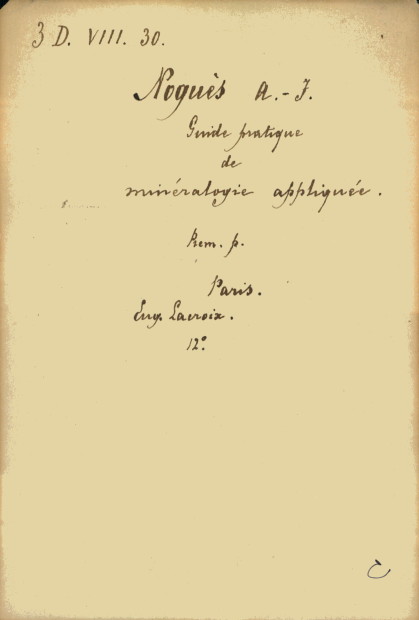 3 D. VIII. 30.
Noguès A.-F.
Guide pratique
de
minéralogie appliquée.
Rem. p.
Paris.
Eug. Lacroix.
12º